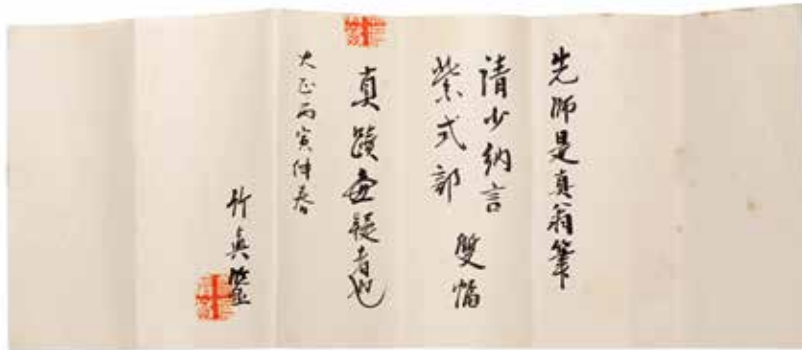 先師是真翁筆
清少納言
紫式部
雙幅
真蹟無疑者也
大正丙寅仲春
竹真鑒